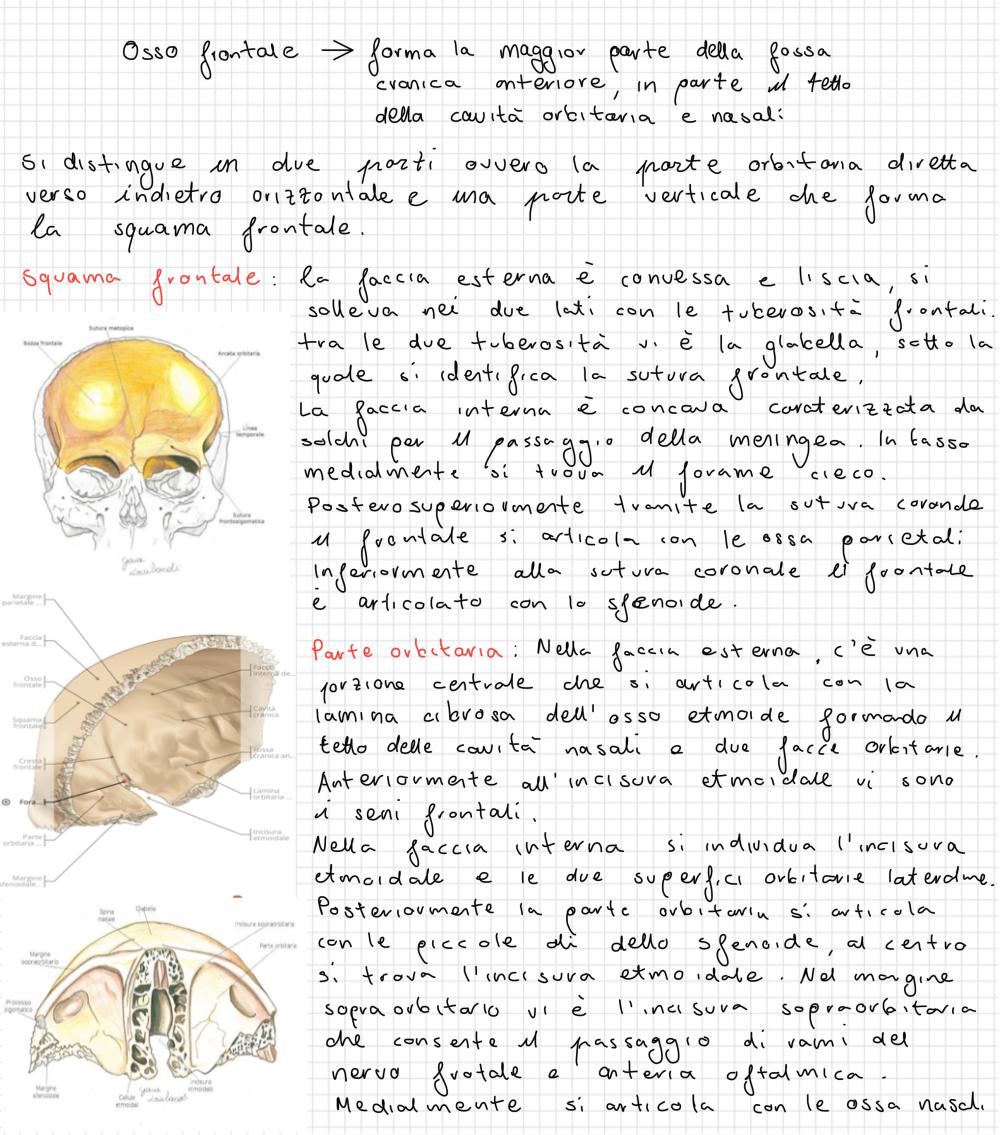 Osso frontale → forma la maggior parte della fossa
cranica anteriore, in parte il tetto
della cavità orbitaria e nasali
Si distingue in due parti ovvero la parte orbitaria diretta
verso indietro orizzontale e una parte verticale che forma
la squama frontale.
Squama frontale: la faccia esterna è convessa e liscia, si
solleva nei due lati con le tuberosità frontali.
tra le due tuberosità vi è la glabella, sotto la
quale si identifica la sutura frontale.
La faccia interna è concava caraterizzata da
solchi per il passaggio della meningea. In basso
medialmente si trova il forame cieco.
Posterosuperiormente tramite la sutura coronale
il frontale si articola con le ossa parietali
Inferiormente alla sutura coronale il frontale
è articolato con lo sfenoide.
Sutura metopica
Bozza frontale
Arcata orbitaria
Linea
temporale
Sutura
frontozigomatica
Parte orbitaria: Nella faccia esterna, c'è una
porzione centrale che si articola con la
lamina cibrosa dell'osso etmoide formando il
tetto delle cavità nasali e due facce orbitarie.
Anteriormente all'incisura etmoidale vi sono
i seni frontali.
Nella faccia interna si individua l'incisura
etmoidale e le due superfici orbitarie laterdme.
Posteriormente la parte orbitaria si articola
con le piccole ali dello sfenoide, al centro
si trova l'incisura etmoidale. Nel margine
sopraorbitario vi è l'incisura sopraorbitaria
che consente il passaggio di rami del
nervo frotale e arteria oftalmica.
Medialmente si articola con le ossa nasali
Margine
parietale ...
Faccia
esterna d...
Osso
frontale
Squama
frontale
Cresta
frontale
Fora...
Parte
orbitaria ...
Margine
sfenoidale...
Faccia
interna de...
Cavità
cranica
Fossa
cranica an...
Lamina
orbitaria ...
Incisura
etmoidale
Glabella
Spina
nasale
Incisura sopraorbitaria
Margine
sopraorbitario
Parte orbitaria
Processo
zigomatico
Margine
sfenoidale
Cellule
etmoidali
Incisura
etmoidale